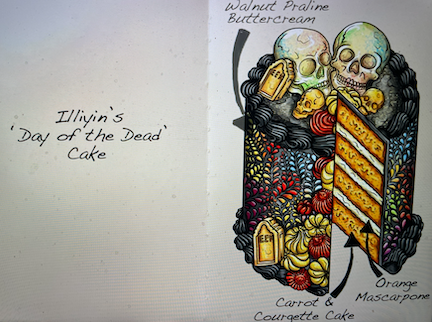 Walnut Praline
Buttercream
Illiyin's
'Day of the Dead'
Cake
Orange
Mascarpone
Carrot &
Courgette Cake